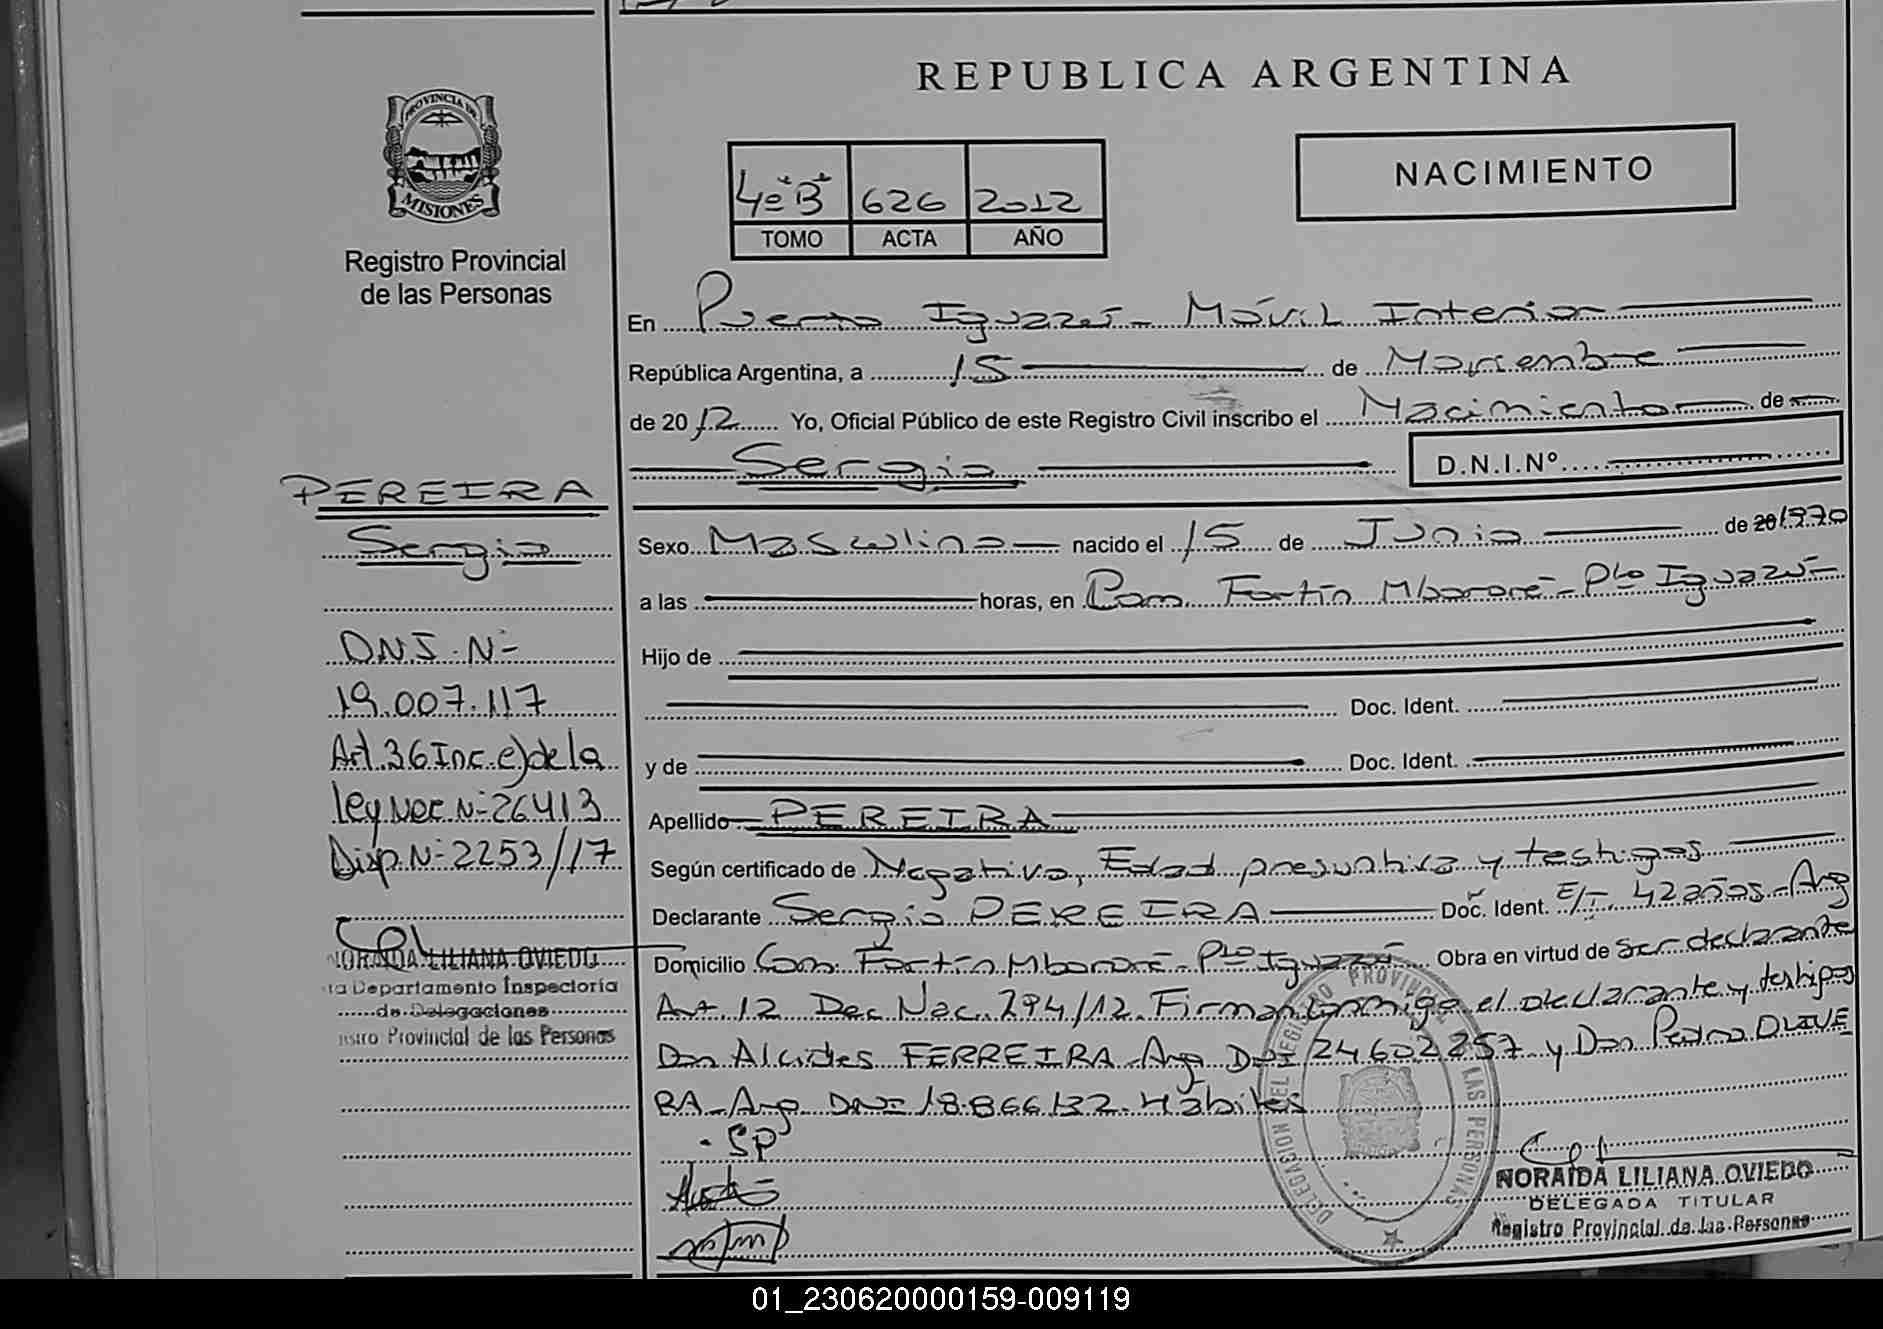 REPUBLICA ARGENTINA
PROVINCIA DE
MISIONES
Registro Provincial
de las Personas
NACIMIENTO
4º "B" 626 2012
TOMO ACTA AÑO
En Puerto Iguazú - Móvil Interior
República Argentina, a 15 de Noviembre
de 2012 Yo, Oficial Público de este Registro Civil inscribo el Nacimiento de
Sergio D.N.I.Nº
PEREIRA
Sergio
Sexo Masculino nacido el 15 de Junio de 20 1970
a las horas, en Com. Fortín Mbororé - Pto Iguazú -
Hijo de
Doc. Ident.
y de Doc. Ident.
Apellido PEREIRA
Según certificado de Negativo, Edad presuntiva y testigos
Declarante Sergio PEREIRA Doc. Ident. E/T 42 años - Arg
Domicilio Com. Fortín Mbororé - Pto Iguazú Obra en virtud de ser declarante
Art. 12 Dec. Nac. 294/12. Firman conmigo el Declarante y testigos
Don Alcides FERREIRA Arg DNI 24602257 y Don Pedro OLIVE
RA - Arg DNI 18.866.132. Hábiles
SP
DNI Nº
19.007.117
Art. 36 Inc. e) de la
Ley Nac. Nº 26413
Disp. Nº 2253/17
NORAIDA LILIANA OVIEDO
Departamento Inspectoría
de Delegaciones
Provincial de las Personas
DELEGACION DEL REGISTRO PROVINCIAL DE LAS PERSONAS
NORAIDA LILIANA OVIEDO
DELEGADA TITULAR
Registro Provincial de las Personas
01_230620000159-009119